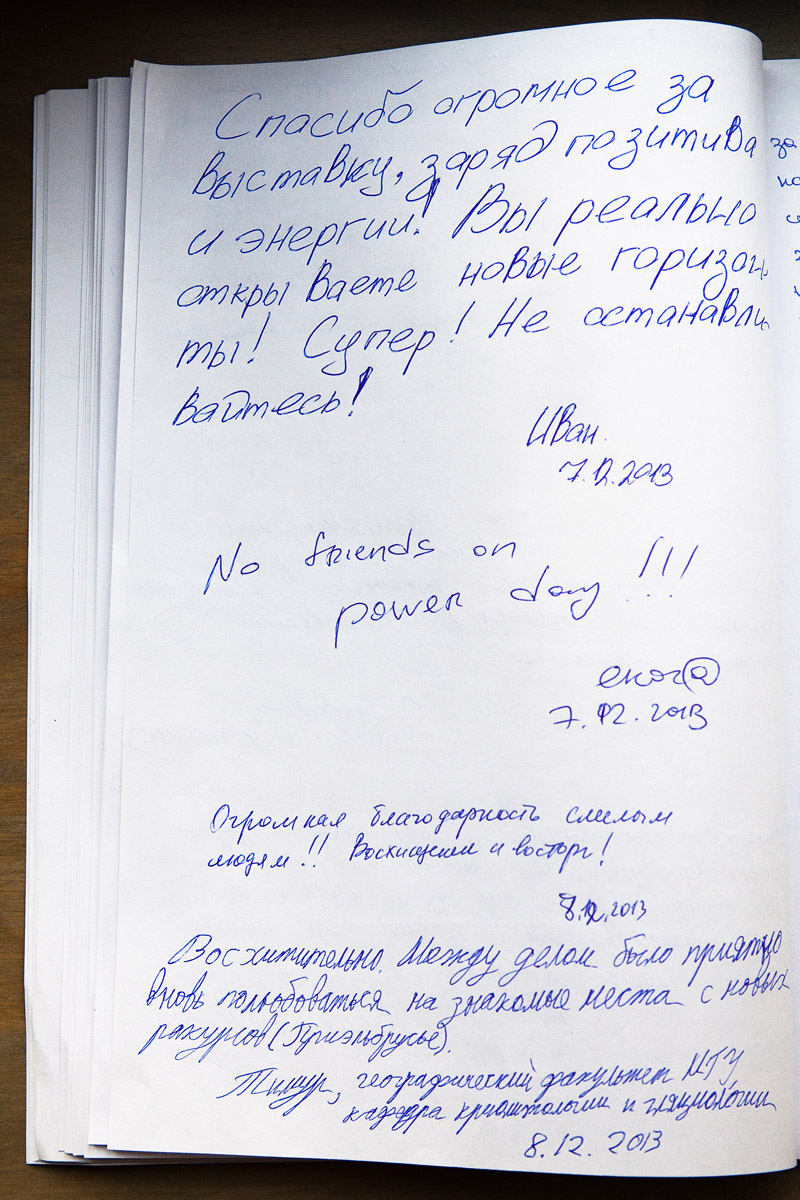 Спасибо огромное за
выставку, заряд позитива
и энергии! Вы реально
открываете новые горизон
ты! Супер! Не останавли
вайтесь!
Иван.
7.12.2013
No friends on
power day !!!
7.12.2013
Огромная благодарность смелым
людям!! Восхищение и восторг!
8.12.2013
Восхитительно. Между делом было приятно
вновь полюбоваться на знакомые места с новых
ракурсов (Приэльбрусье).
Тимур, географический факультет МГУ
кафедра криолитологии и гляциологии
8.12.2013
за